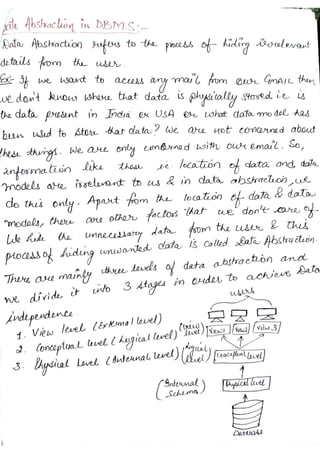 Data Abstraction in DBMS:-
Data Abstraction refers to the process of hiding irrelevant
details from the user.
Ex- If we want to access any mail from our Gmail then
we don't know where that data is physically stored i.e is
the data present in India or USA or what data model has
been used to store that data? We are not concerned about
these things. We are only concerned with our email. So,
information like these i.e. location of data and data
models are irrelevant to us & in data abstraction, we
do this only. Apart from the location of data & data
models, there are other factors that we don't care of.
We hide the unnecessary data from the user & this
process of hiding unwanted data is called Data Abstraction.
There are mainly three levels of data abstraction and
we divide it into 3 stages in order to achieve Data
independence.
users
1. View level (External level)
2. Conceptual level (Logical level)
3. Physical Level (Internal level)
(View level)
View1 View2 View3
(Logical level)
Conceptual level
(Internal Schema)
Physical level
Database